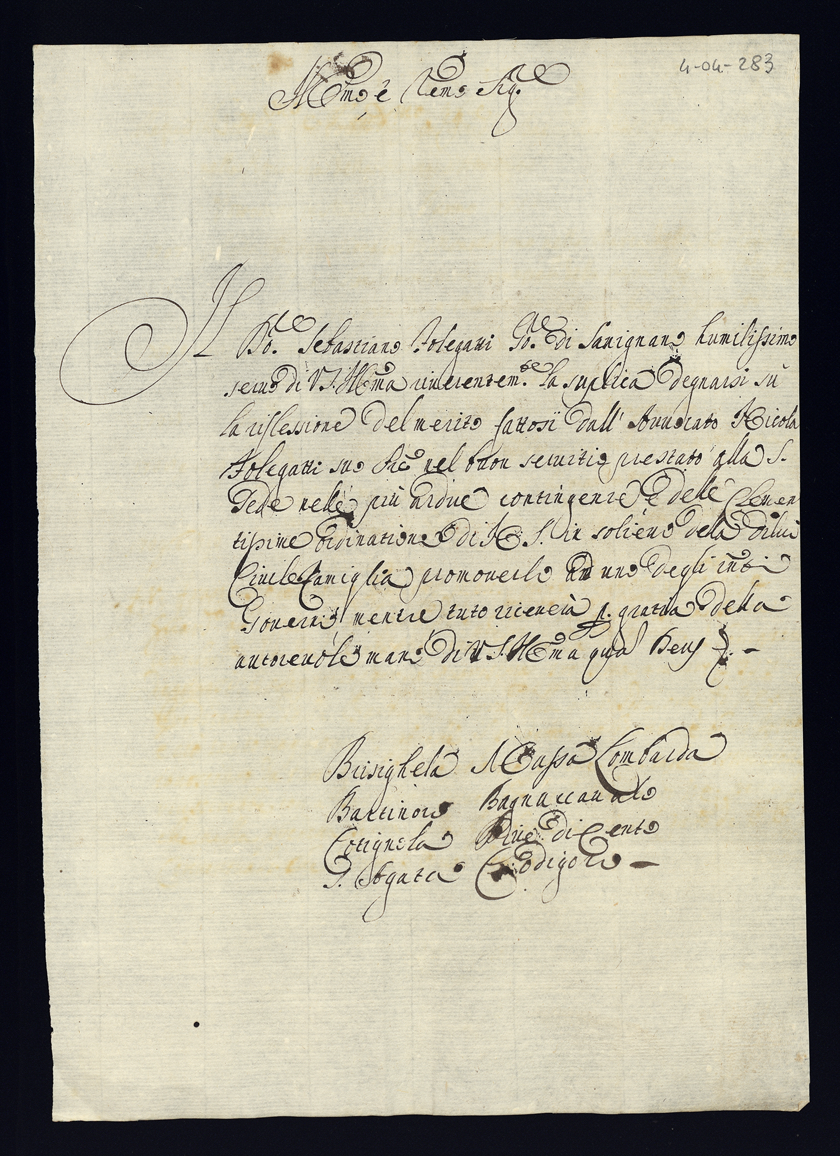 4-04-283
Ill.mo e R.emo Sig.
Il
Do.r Sebastiano Folegatti Go.re di Savignano humilissimo
seruo di V. S. Ill.ma riuerentem.te la suplica degnarsi sù
la riflessione del merito fattosi dall' Auuocato Nicola
Folegatti suo nel buon seruitio prestato alla S.
Sede nelle più ardue contingenze e delle Clemen
tissime ordinationi di N. S. in solieuo della di lui
Ciuile Famiglia promouerlo ad uno degli
Gouerni, mentre tuto riceuerà p. gratia della
autoreuole mano di V. S. Ill.ma
Brisighela Massa Lombarda
Bartinoro Bagnacauallo
Cotignola Pieue di Cento
S. Agata Codigoro